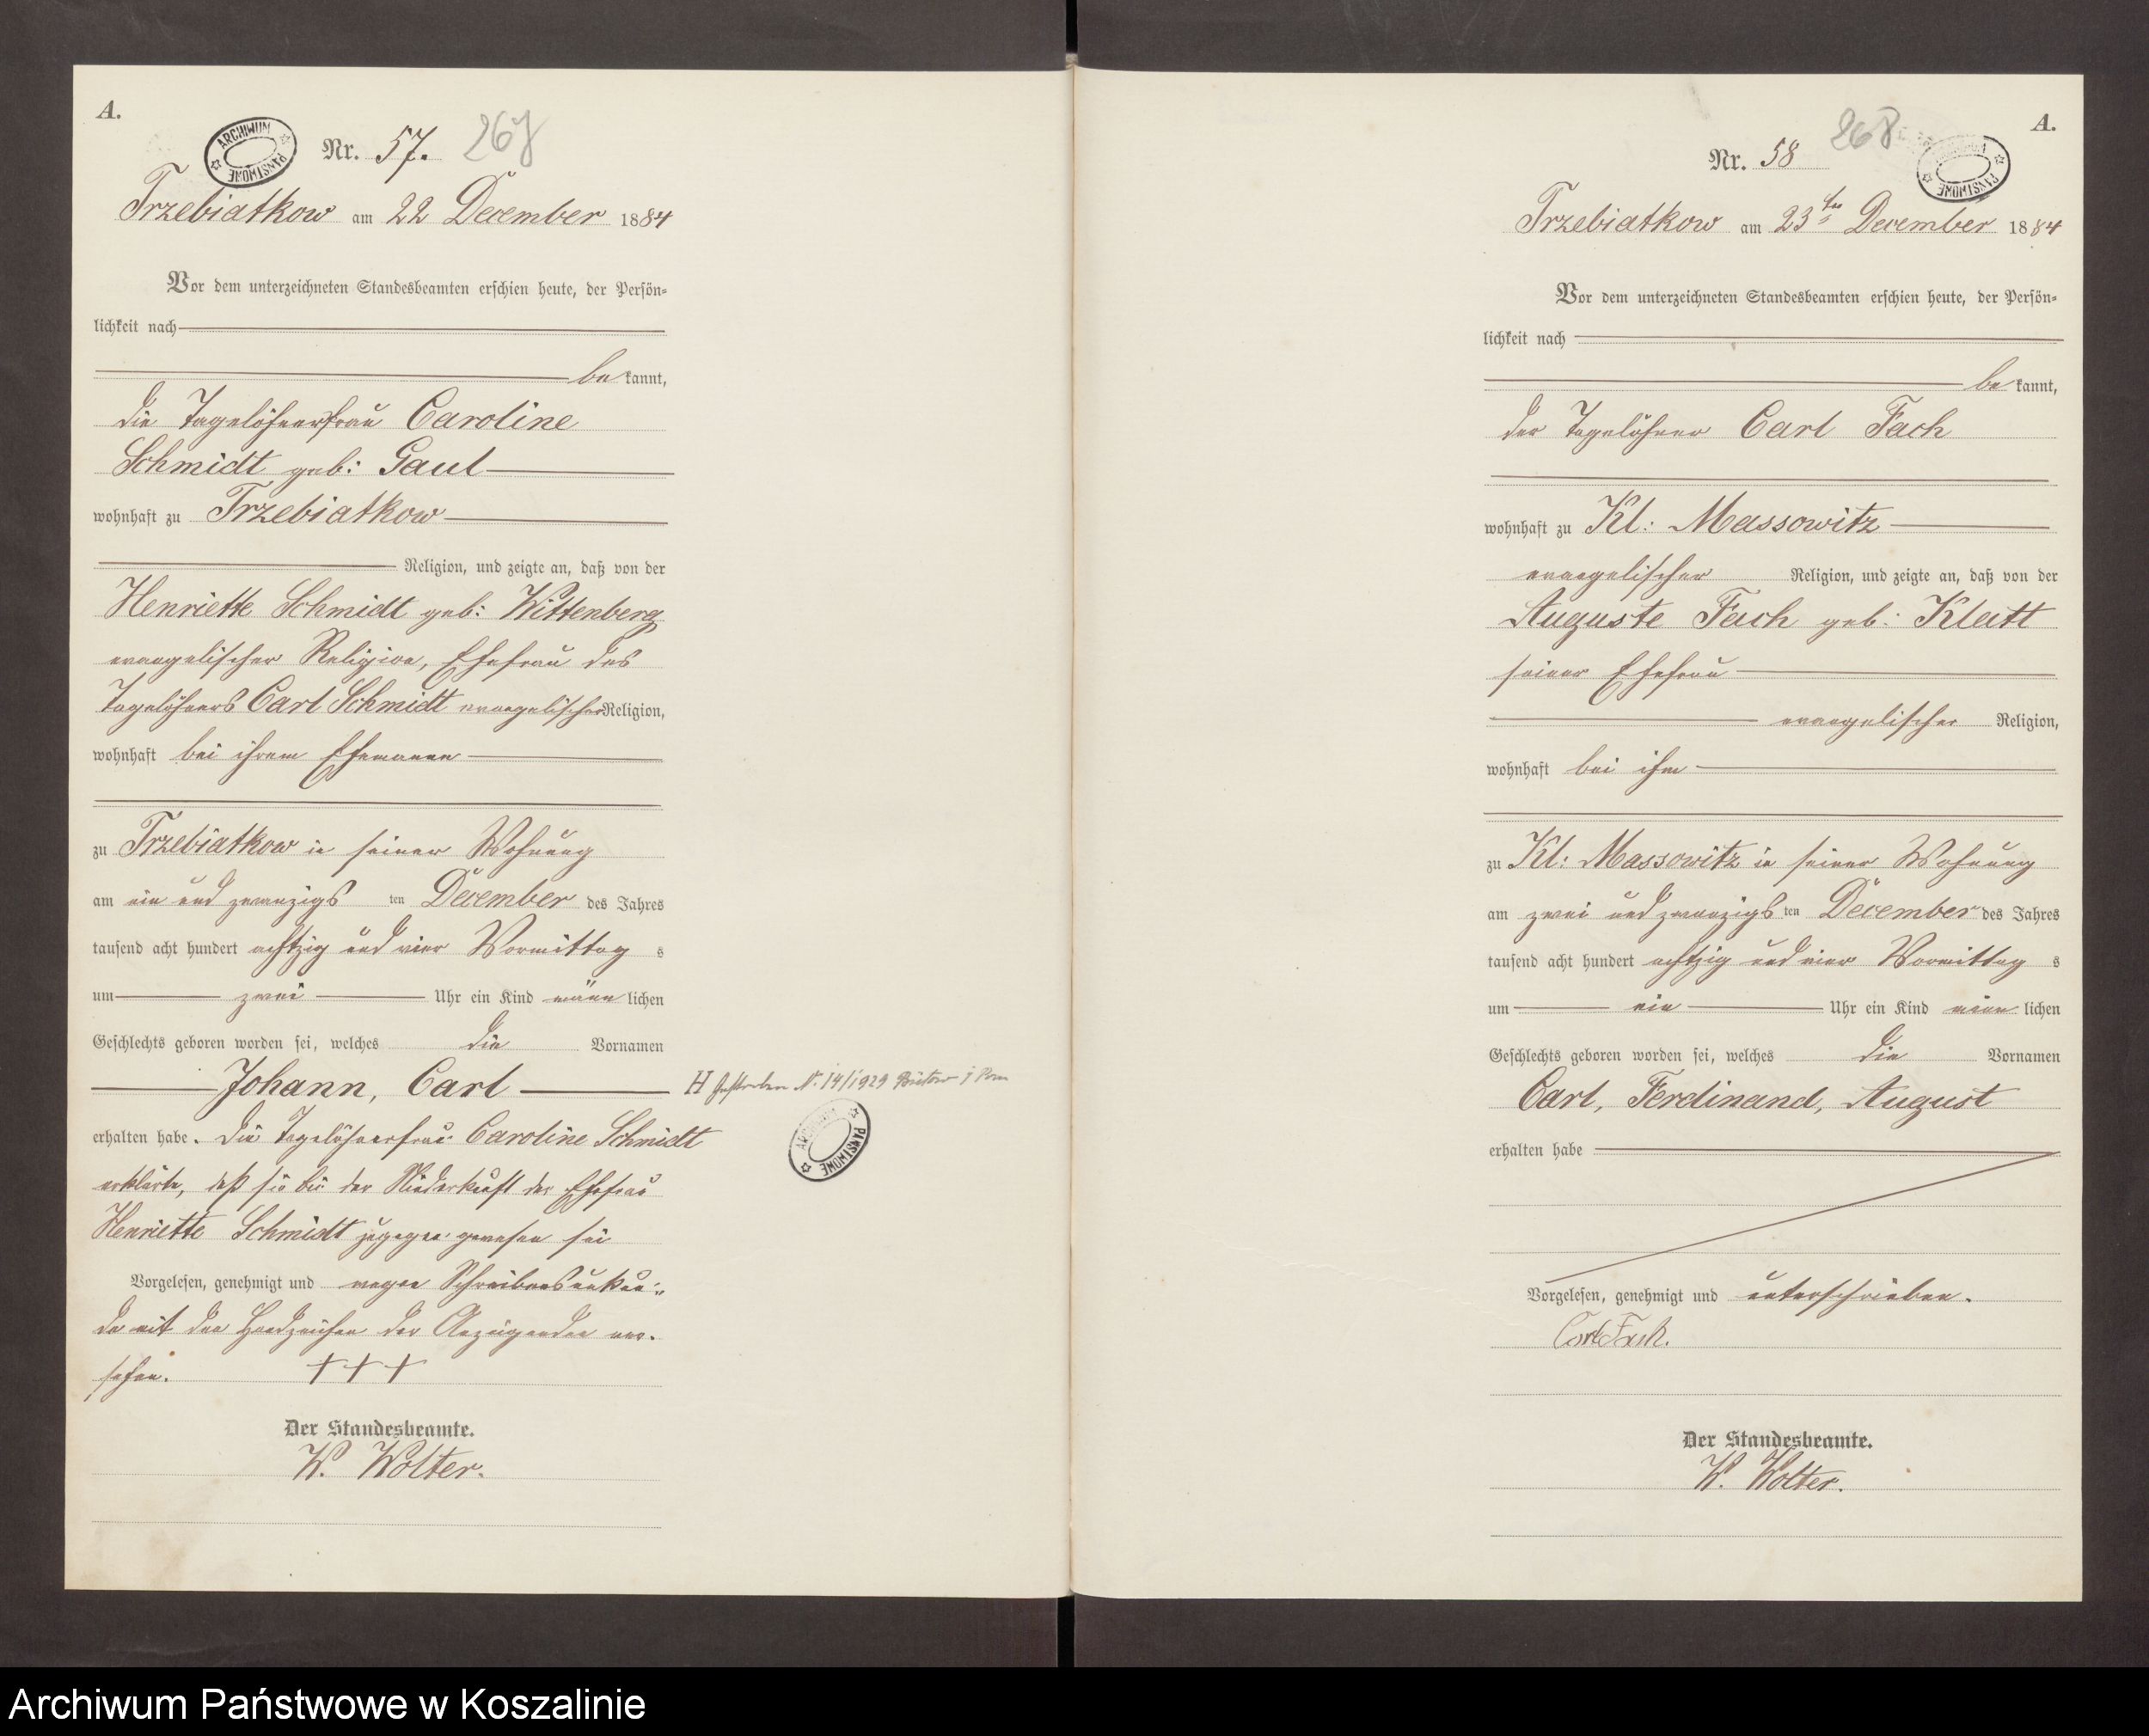 A.
ARCHIWUM PAŃSTWOWE
Nr. 57. 267
Trzebiatkow am 22 December 1884
Vor dem unterzeichneten Standesbeamten erschien heute, der Persön=
lichkeit nach
be kannt,
die Tagelöhnerfrau Caroline
Schmidt geb: Gaul
wohnhaft zu Trzebiatkow
Religion, und zeigte an, daß von der
Henriette Schmidt geb: Wittenberg
evangelischer Religion, Ehefrau des
Tagelöhners Carl Schmidt evangelischer Religion,
wohnhaft bei ihrem Ehemanne
zu Trzebiatkow in seiner Wohnung
am ein und zwanzigs ten December des Jahres
tausend acht hundert achtzig und vier Vormittag s
um zwei Uhr ein Kind männ lichen
Geschlechts geboren worden sei, welches die Vornamen
Johann, Carl
H Gestorben N. 14/1929 Bütow i Pom
erhalten habe. Die Tagelöhnerfrau Caroline Schmidt
ARCHIWUM PAŃSTWOWE
erklärte, daß sie bei der Niederkunft der Ehefrau
Henriette Schmidt zugegen gewesen sei
Vorgelesen, genehmigt und wegen Schreibensunkun=
de mit den Handzeichen der Anzeigenden ver=
sehen. +++
Der Standesbeamte.
W. Wolter.
A.
Nr. 58 268
ARCHIWUM PAŃSTWOWE
Trzebiatkow am 23ten December 1884
Vor dem unterzeichneten Standesbeamten erschien heute, der Persön=
lichkeit nach
be kannt,
der Tagelöhner Carl Fach
wohnhaft zu Kl: Massowitz
evangelischer Religion, und zeigte an, daß von der
Auguste Fach geb: Klatt
seiner Ehefrau
evangelischer Religion,
wohnhaft bei ihm
zu Kl: Massowitz in seiner Wohnung
am zwei und zwanzigs ten December des Jahres
tausend acht hundert achtzig und vier Vormittag s
um ein Uhr ein Kind männ lichen
Geschlechts geboren worden sei, welches die Vornamen
Carl, Ferdinand, August
erhalten habe
Vorgelesen, genehmigt und unterschrieben.
Carl Fach.
Der Standesbeamte.
W. Wolter.
Archiwum Państwowe w Koszalinie